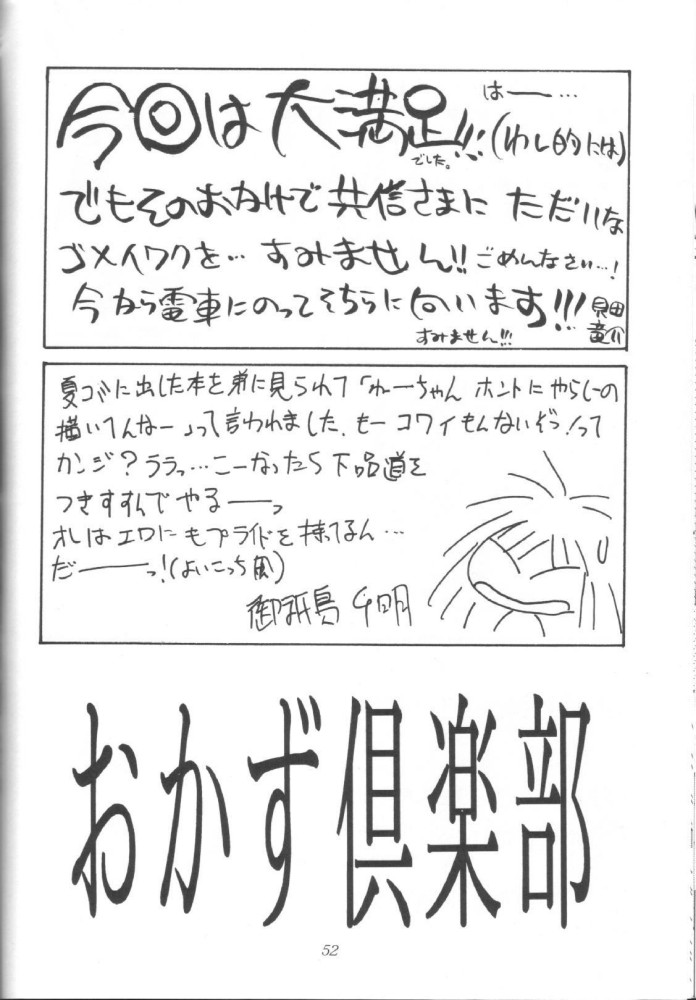 はーー…
今回は大満足!!!(わし的には)
でした。
でもそのおかげで共信さまに ただいな
ゴメイワクを… すみません!! ごめんなさい…!
今から電車にのってそちらに向います!!!
すみません!!!
見田竜介
夏コミに出した本を弟に見られて「わーちゃん ホントにやらしーの
描いてんなー」って言われました。もー コワイもんないぞっ!って
カンジ?ララっ…こーなったら下品道を
つきすすんでやるーーっ
オレはエロにもプライドを持ってるん…
だーーーっ!(よいこっち風)
御祇島 千明
おかず倶楽部
52